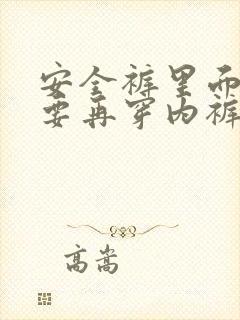 安全裤里而
要再穿内裤
高嵩